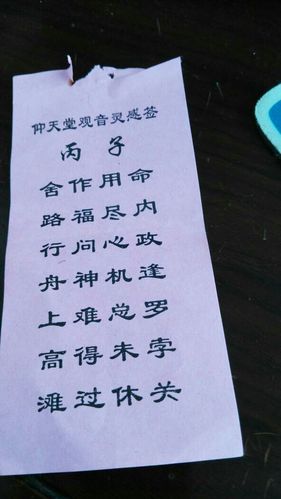 仰天堂观音灵感签
丙子
命内政逢罗孛关
用尽心机总未休
作福问神难得过
舍路行舟上高滩